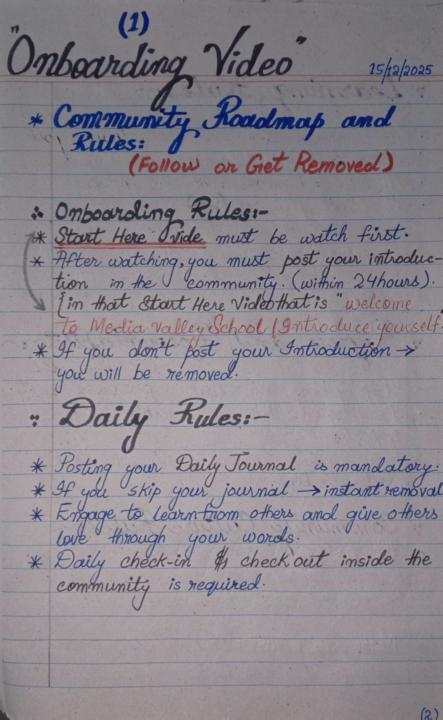 (1)
"Onboarding Video"
15/12/2025
* Community Roadmap and
Rules:
(Follow or Get Removed)
Onboarding Rules:-
* Start Here Vide must be watch first.
* After watching, you must post your introduc-
tion in the community. (within 24hours).
[in that Start Here Video that is "welcome
to Media Valley School / Introduce yourself
* If you don't post your Introduction →
you will be removed.
Daily Rules:-
* Posting your Daily Journal is mandatory.
* If you skip your journal → instant removal
* Engage to Learn from others and give others
love through your words.
* Daily check-in & check out inside the
community is required.
(2)